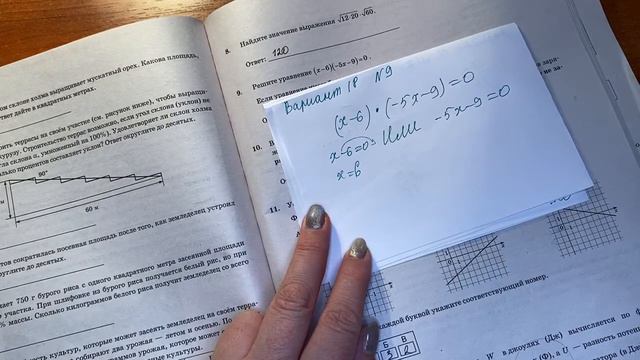 ом склоне холма выращивает мускатный орех. Какова площадь,
твет дайте в квадратных метрах.
рить террасы на своём участке (см. рисунок ниже), чтобы выращи-
курузу. Строительство террас возможно, если угол склона (уклон) не
гла склона α, умноженный на 100%). Удовлетворяет ли склон холма
лько процентов составляет уклон? Ответ округлите до десятых.
90°
60 м
тов сократилась посевная площадь после того, как земледелец устроил
руглите до десятых.
ает 750 г бурого риса с одного квадратного метра засеянной площади
участка. При шлифовке из бурого риса получается белый рис, но при
% массы. Сколько килограммов белого риса получит земледелец со всего
ность культур, которые может засеять земледелец на своём терра-
собирают два урожая — летом и осенью. По
раммов урожая, которое может
ные культуры.
8. Найдите значение выражения √12·20·√60.
Ответ: 120
9. Решите уравнение (x−6)(−5x−9)=0.
Если уравнение
Вариант 18 N9
(x−6)·(−5x−9)=0
x−6=0 Или −5x−9=0
x=6
10.
11.
аждой буквой укажите соответствующий номер.
Б В
3 2
W в джоулях (Дж) вычисляется по ф
а U — разность потен